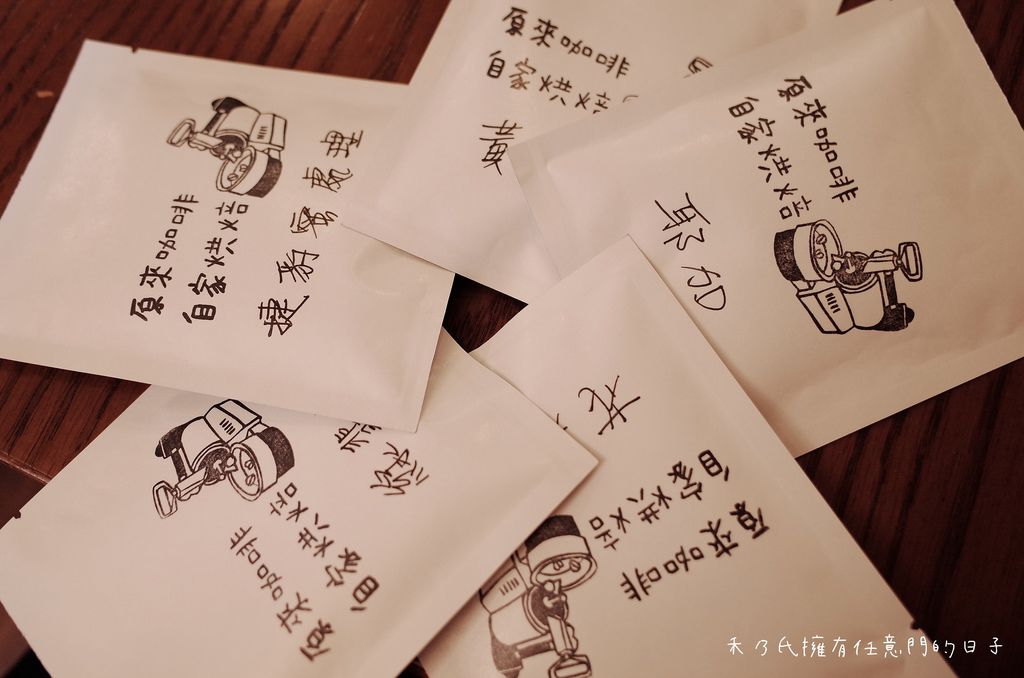 原來咖啡
自家烘焙
捷豹蜜處理
原來咖啡
自家烘焙
黃
原來咖啡
自家烘焙
耶加
原來咖啡
自家烘焙
原來咖啡
自家烘焙
花
禾乃氏擁有任意門的日子